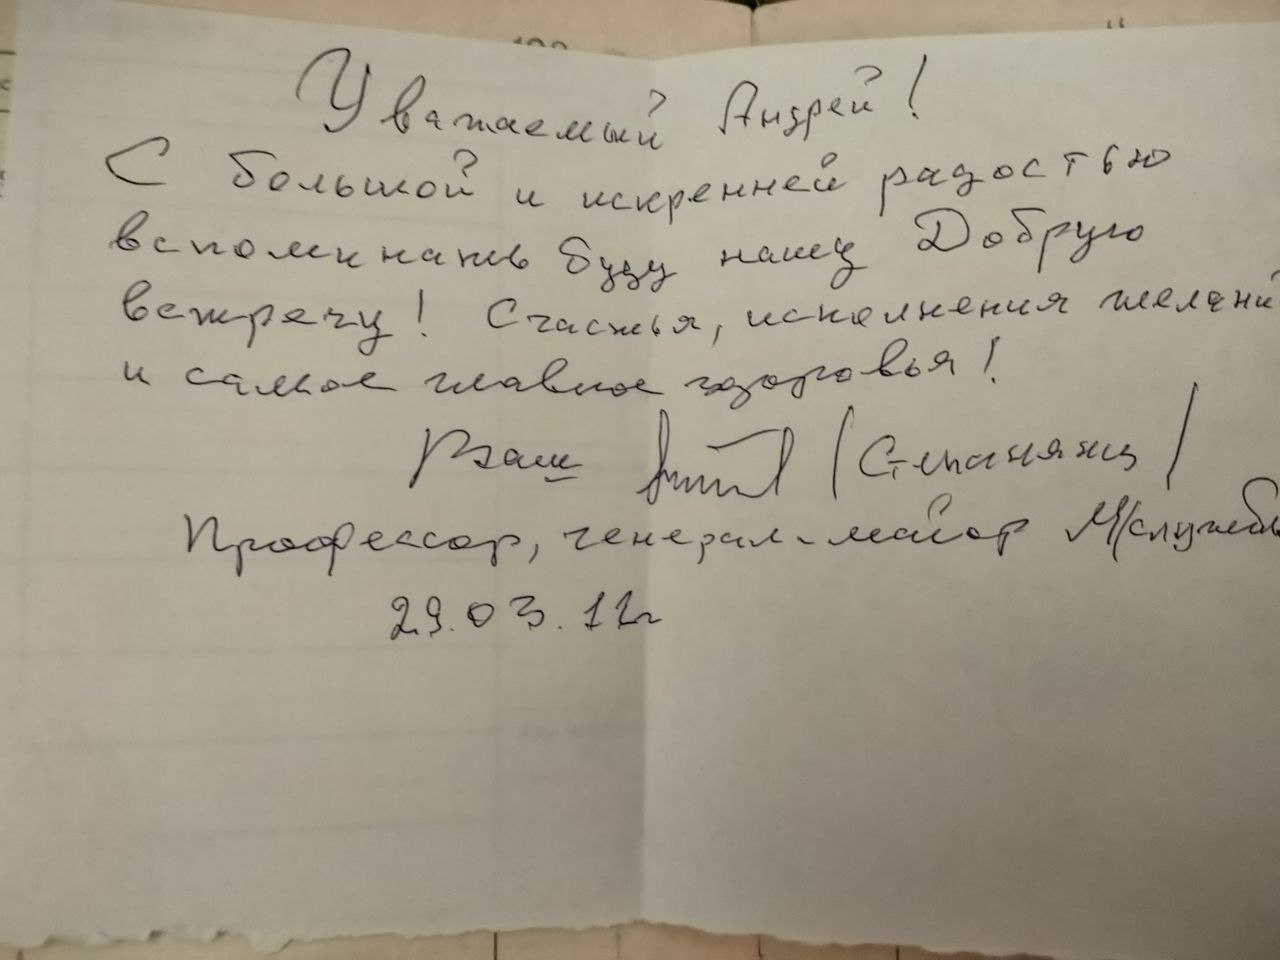 Уважаемый Андрей!
С большой и искренней радостью
вспоминать буду нашу Добрую
встречу! Счастья, исполнения желани
и самое главное здоровья!
Ваш /Степанянц/
Профессор, генерал-майор М/службы
29.03.12г